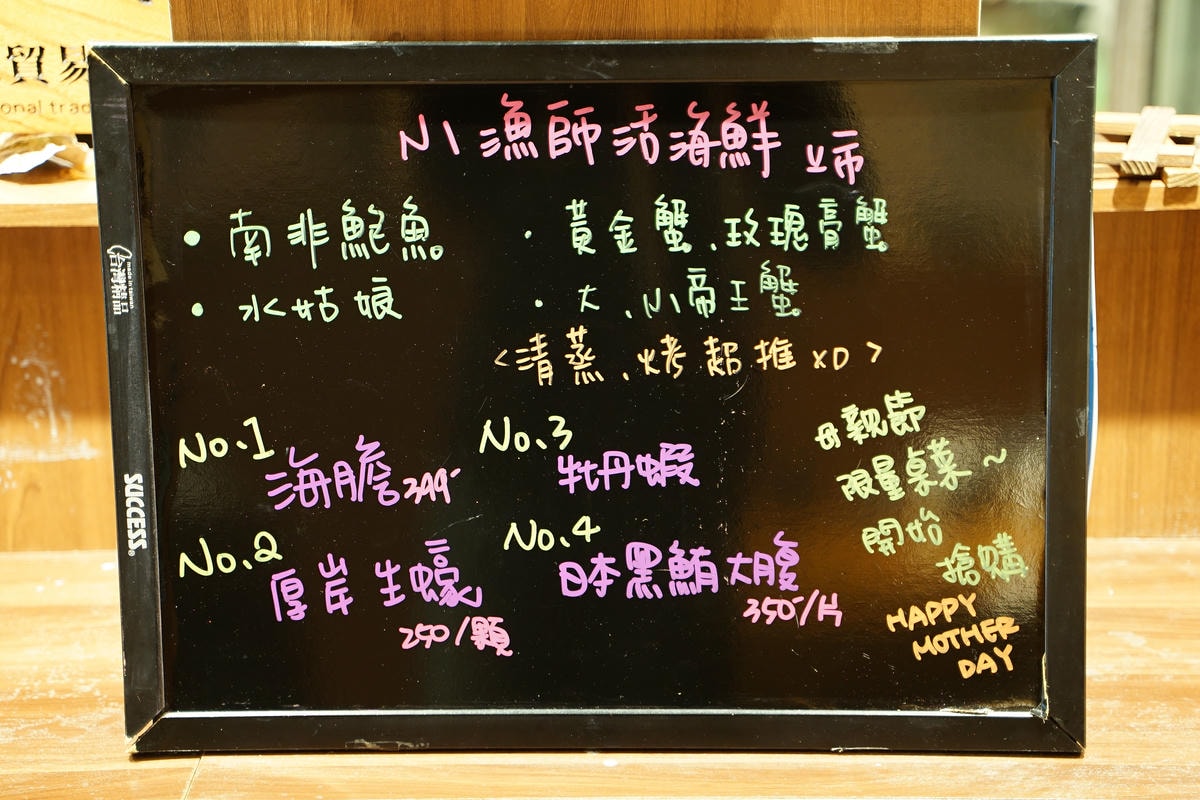 貿易
onal trad
小漁師活海鮮 市
• 南非鮑魚
• 水姑娘
• 黃金蟹、玫瑰膏蟹
• 大、小帝王蟹
<清蒸、烤超推XD>
No.1
海膽349-
No.2
厚岸生蠔
250/顆
No.3
牡丹蝦
No.4
日本黑鮪大腹
350-/片
母親節
限量桌菜~
開始
搶購
HAPPY
MOTHER
DAY
made in taiwan
台灣精品
SUCCESS®